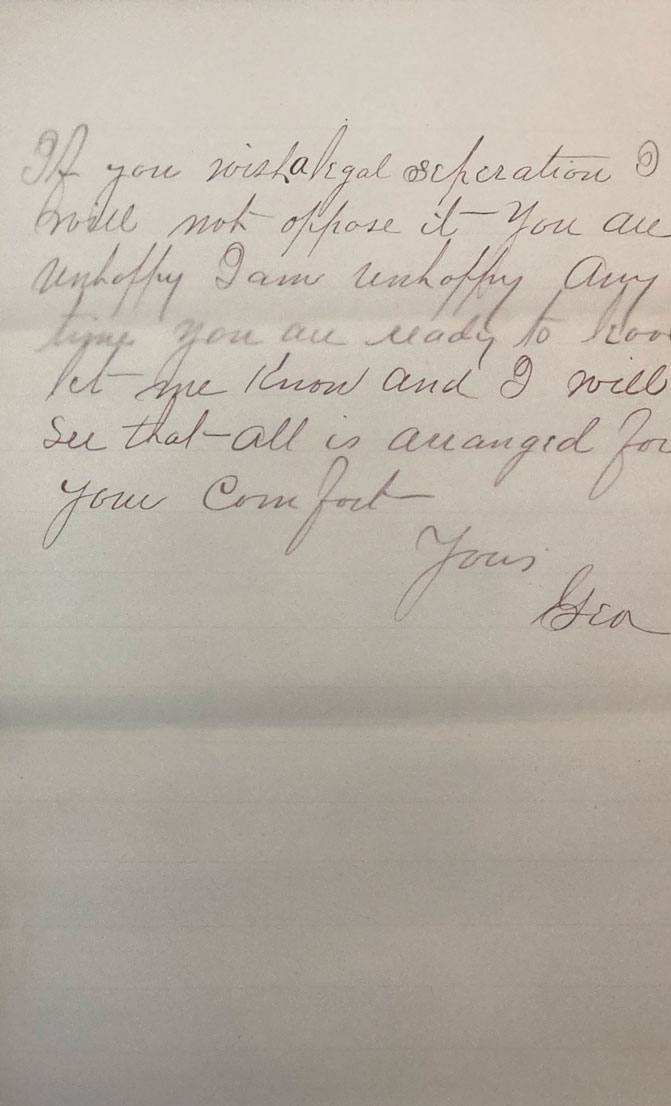 If you wish a legal seperation I
will not oppose it – You are
unhappy I am unhappy Any
time you are ready to
let me Know and I will
See that – all is arranged for
your Comfort
Yours
Geo